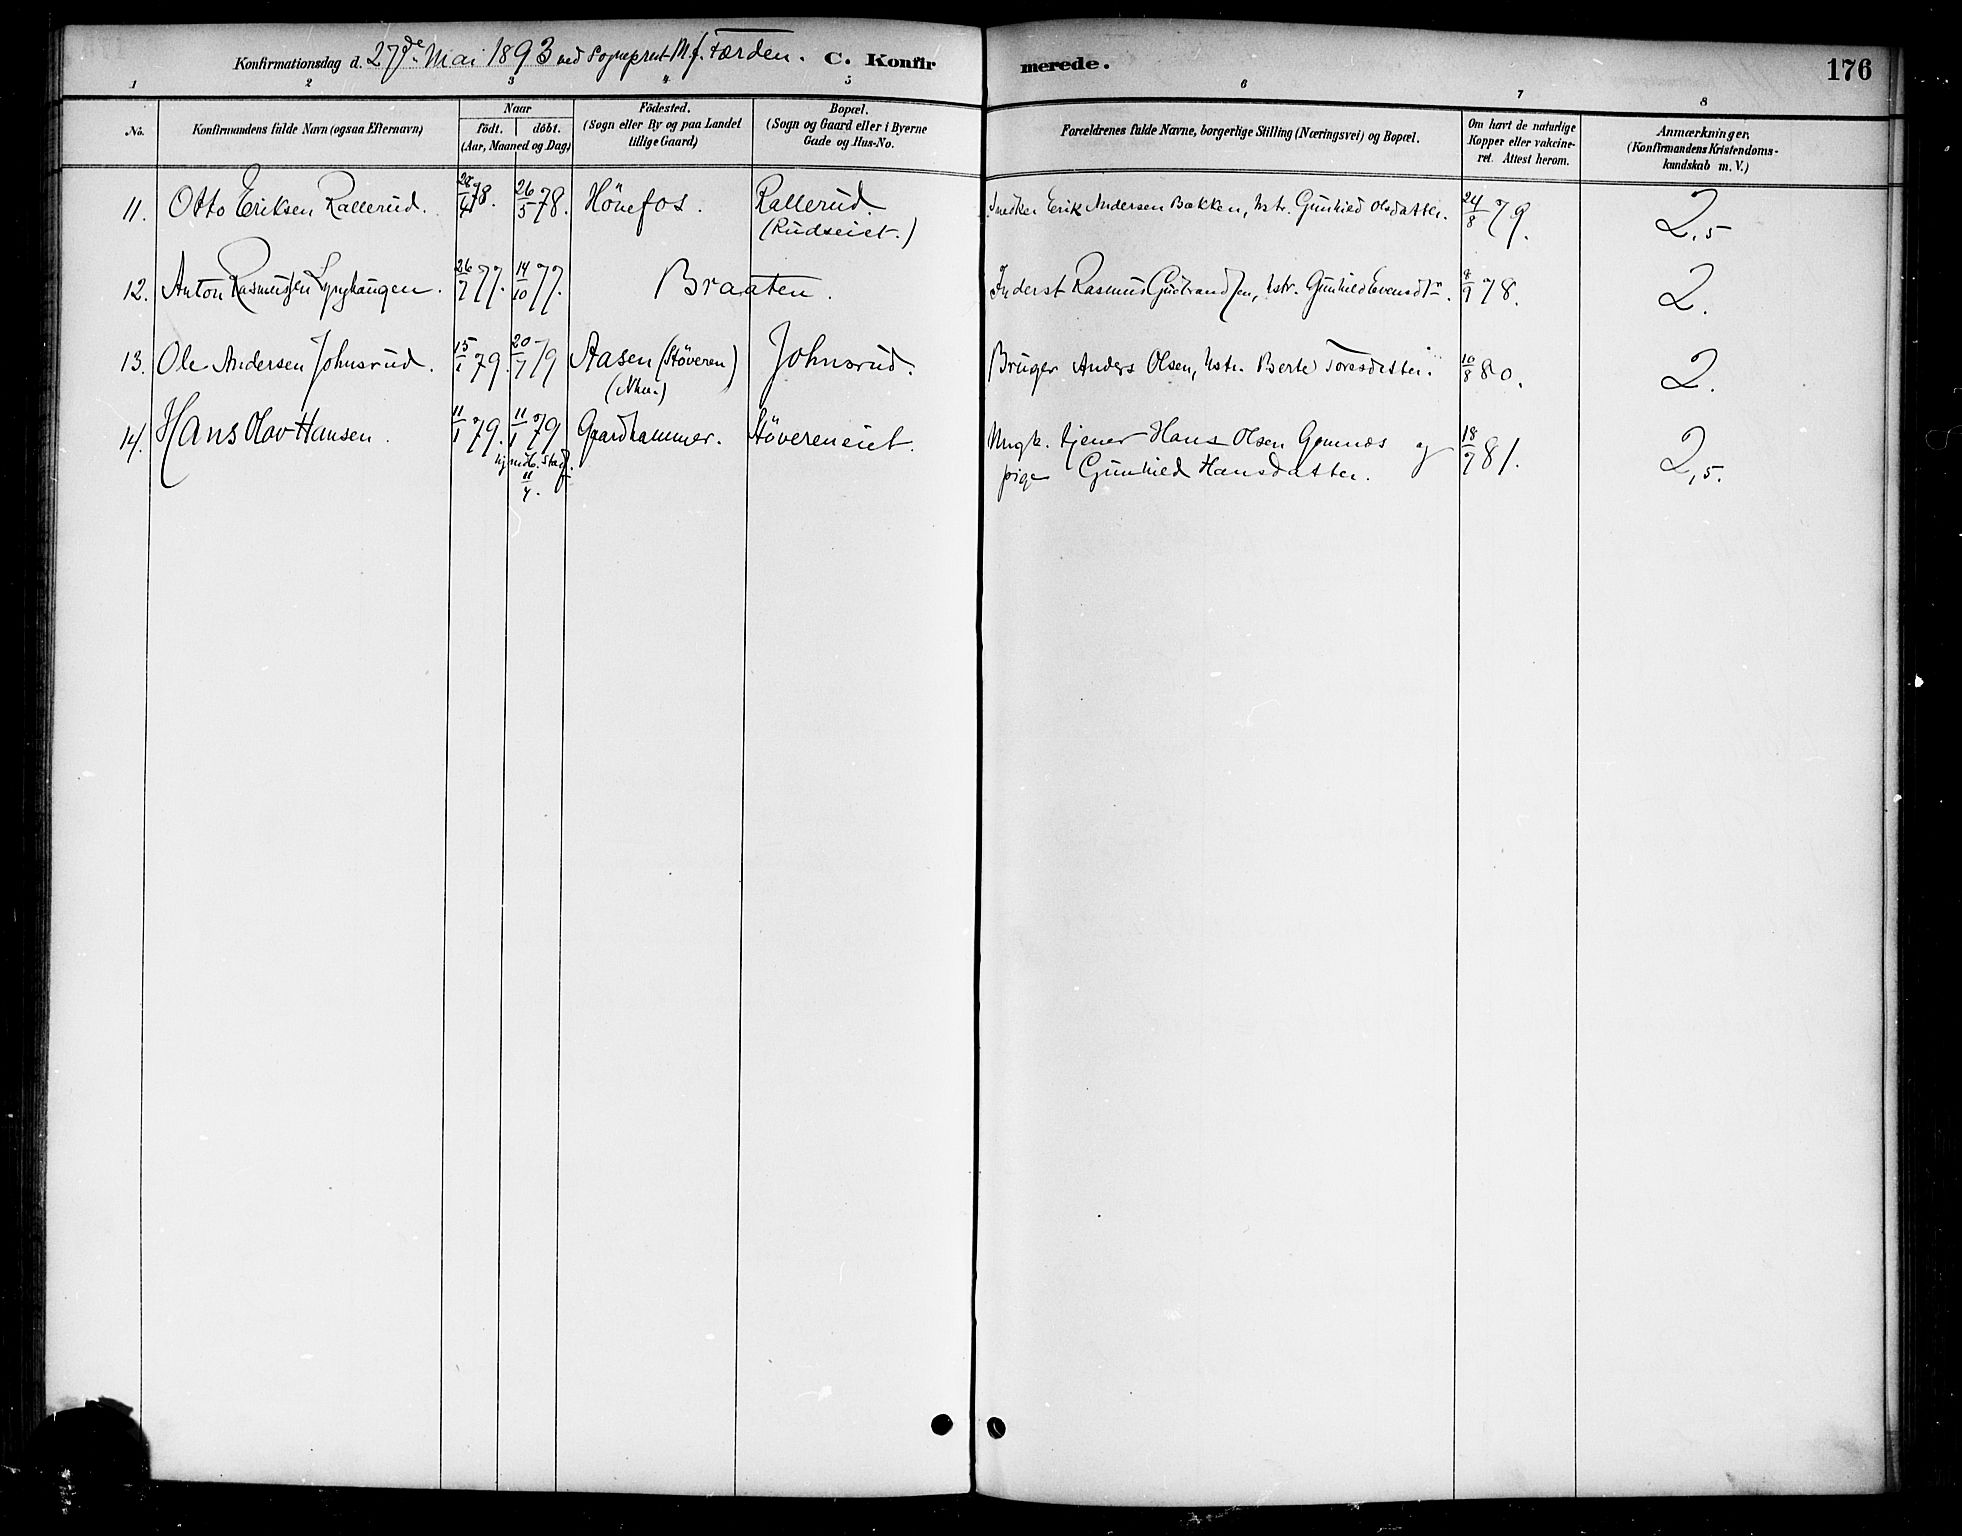 Konfirmationsdag d. 27de Mai 1893 ved Sognepræst M. J. Færden. C. Konfirmerede. 176
1 2 3 4 5 6 7 8
No. Konfirmandens fulde Navn (ogsaa Efternavn) Naar födt. döbt. (Aar, Maaned og Dag) Födested. (Sogn eller By og paa Landet tillige Gaard) Bopæl. (Sogn og Gaard eller i Byerne Gade og Hus-No. Forældrenes fulde Navne, borgerlige Stilling (Næringsvei) og Bopæl. Om havt de naturlige Kopper eller vakcineret. Attest herom. Anmærkninger, (Konfirmandens Kristendomskundskab m. V.)
11. Otto Eriksen Rallerud. 28/4 78. 26/5 78. Hönefos. Rallerud. (Rudseiet.) Snedker Erik Andersen Bakken, hstr. Gunhild Olsdatter. 24/8 79. 2,5
12. Anton Rasmussen Lynghaugen. 26/7 77. 14/10 77. Braaten. Inderst Rasmus Gulbrandsen, hstr. Gunhild Evensdtr 8/9 78. 2.
13. Ole Andersen Johnsrud. 15/1 79. 20/7 79 Aasen (Stöveren) Johnsrud. Bruger Anders Olsen, hstr. Berte Toresdatter. 10/8 80. 2.
14. Hans Olav Hansen. 11/1 79. 11/1 79 hjmdb. Stadf. 11/4. Gaardhammer. Stövereneiet. Ungk. tjener Hans Olsen Gomnæs og
pige Gunhild Hansdatter. 18/7 81. 2,5.